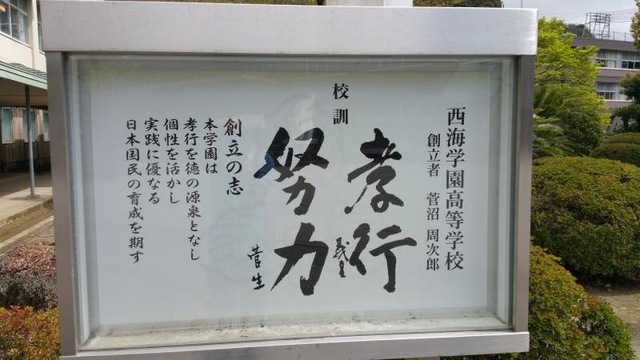 西海学園高等学校
創立者 菅沼 周次郎
校訓
孝行
努力
菅生
創立の志
本学園は
孝行を徳の源泉となし
個性を活かし
実践に優なる
日本国民の育成を期す